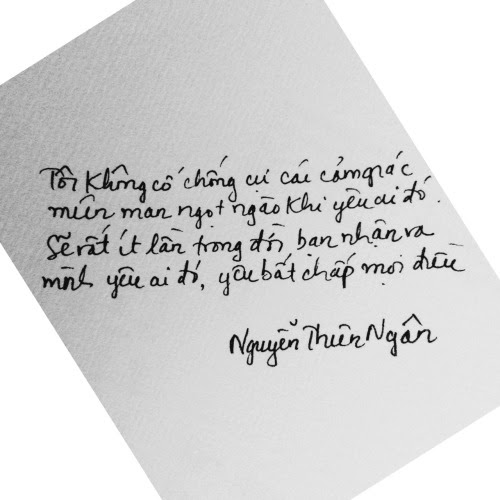 Tôi không cố chống cự cái cảm giác
miên man ngọt ngào khi yêu ai đó.
Sẽ rất ít lần trong đời bạn nhận ra
mình yêu ai đó, yêu bất chấp mọi điều
Nguyễn Thiên Ngân